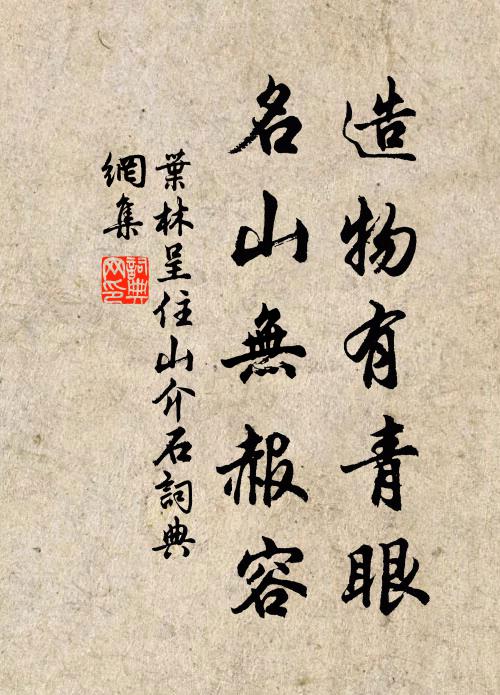 造物有青眼
名山無赧容
葉林呈住山介石詞典
網集
詞典
網印